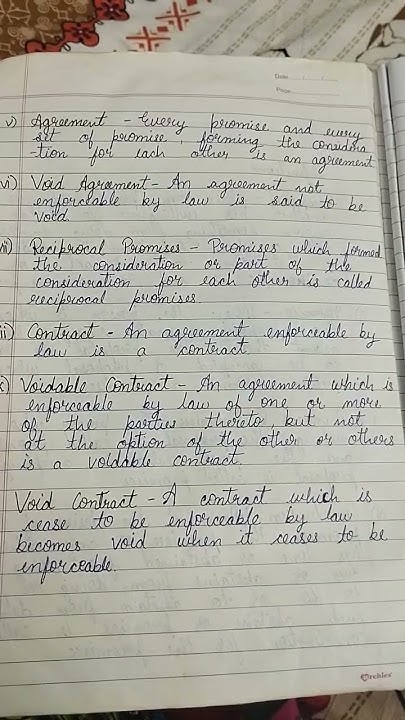 Date
Page
v) Agreement - Every promise and every
set of promise, forming the considera
-tion for each other is an agreement
vi) Void Agreement - An agreement not
enforceable by law is said to be
void.
vii) Reciprocal Promises - Promises which formed
the consideration or part of the
consideration for each other is called
reciprocal promises.
ii) Contract - An agreement enforceable by
law is a contract.
x) Voidable Contract - An agreement which is
enforceable by law of one or more
of the parties thereto, but not
at the option of the other or others
is a voidable contract.
Void Contract - A contract which is
cease to be enforceable by law
becomes void when it ceases to be
enforceable.
Archies